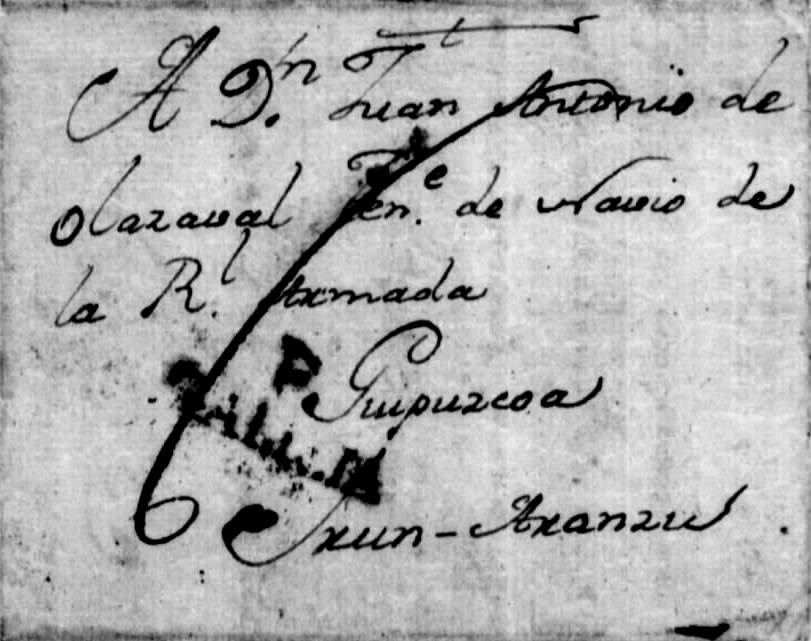 A D.n Juan Antonio de
Olazaval Ten.e de Navio de
la R.l Armada
Guipuzcoa
Irun-Aranzu